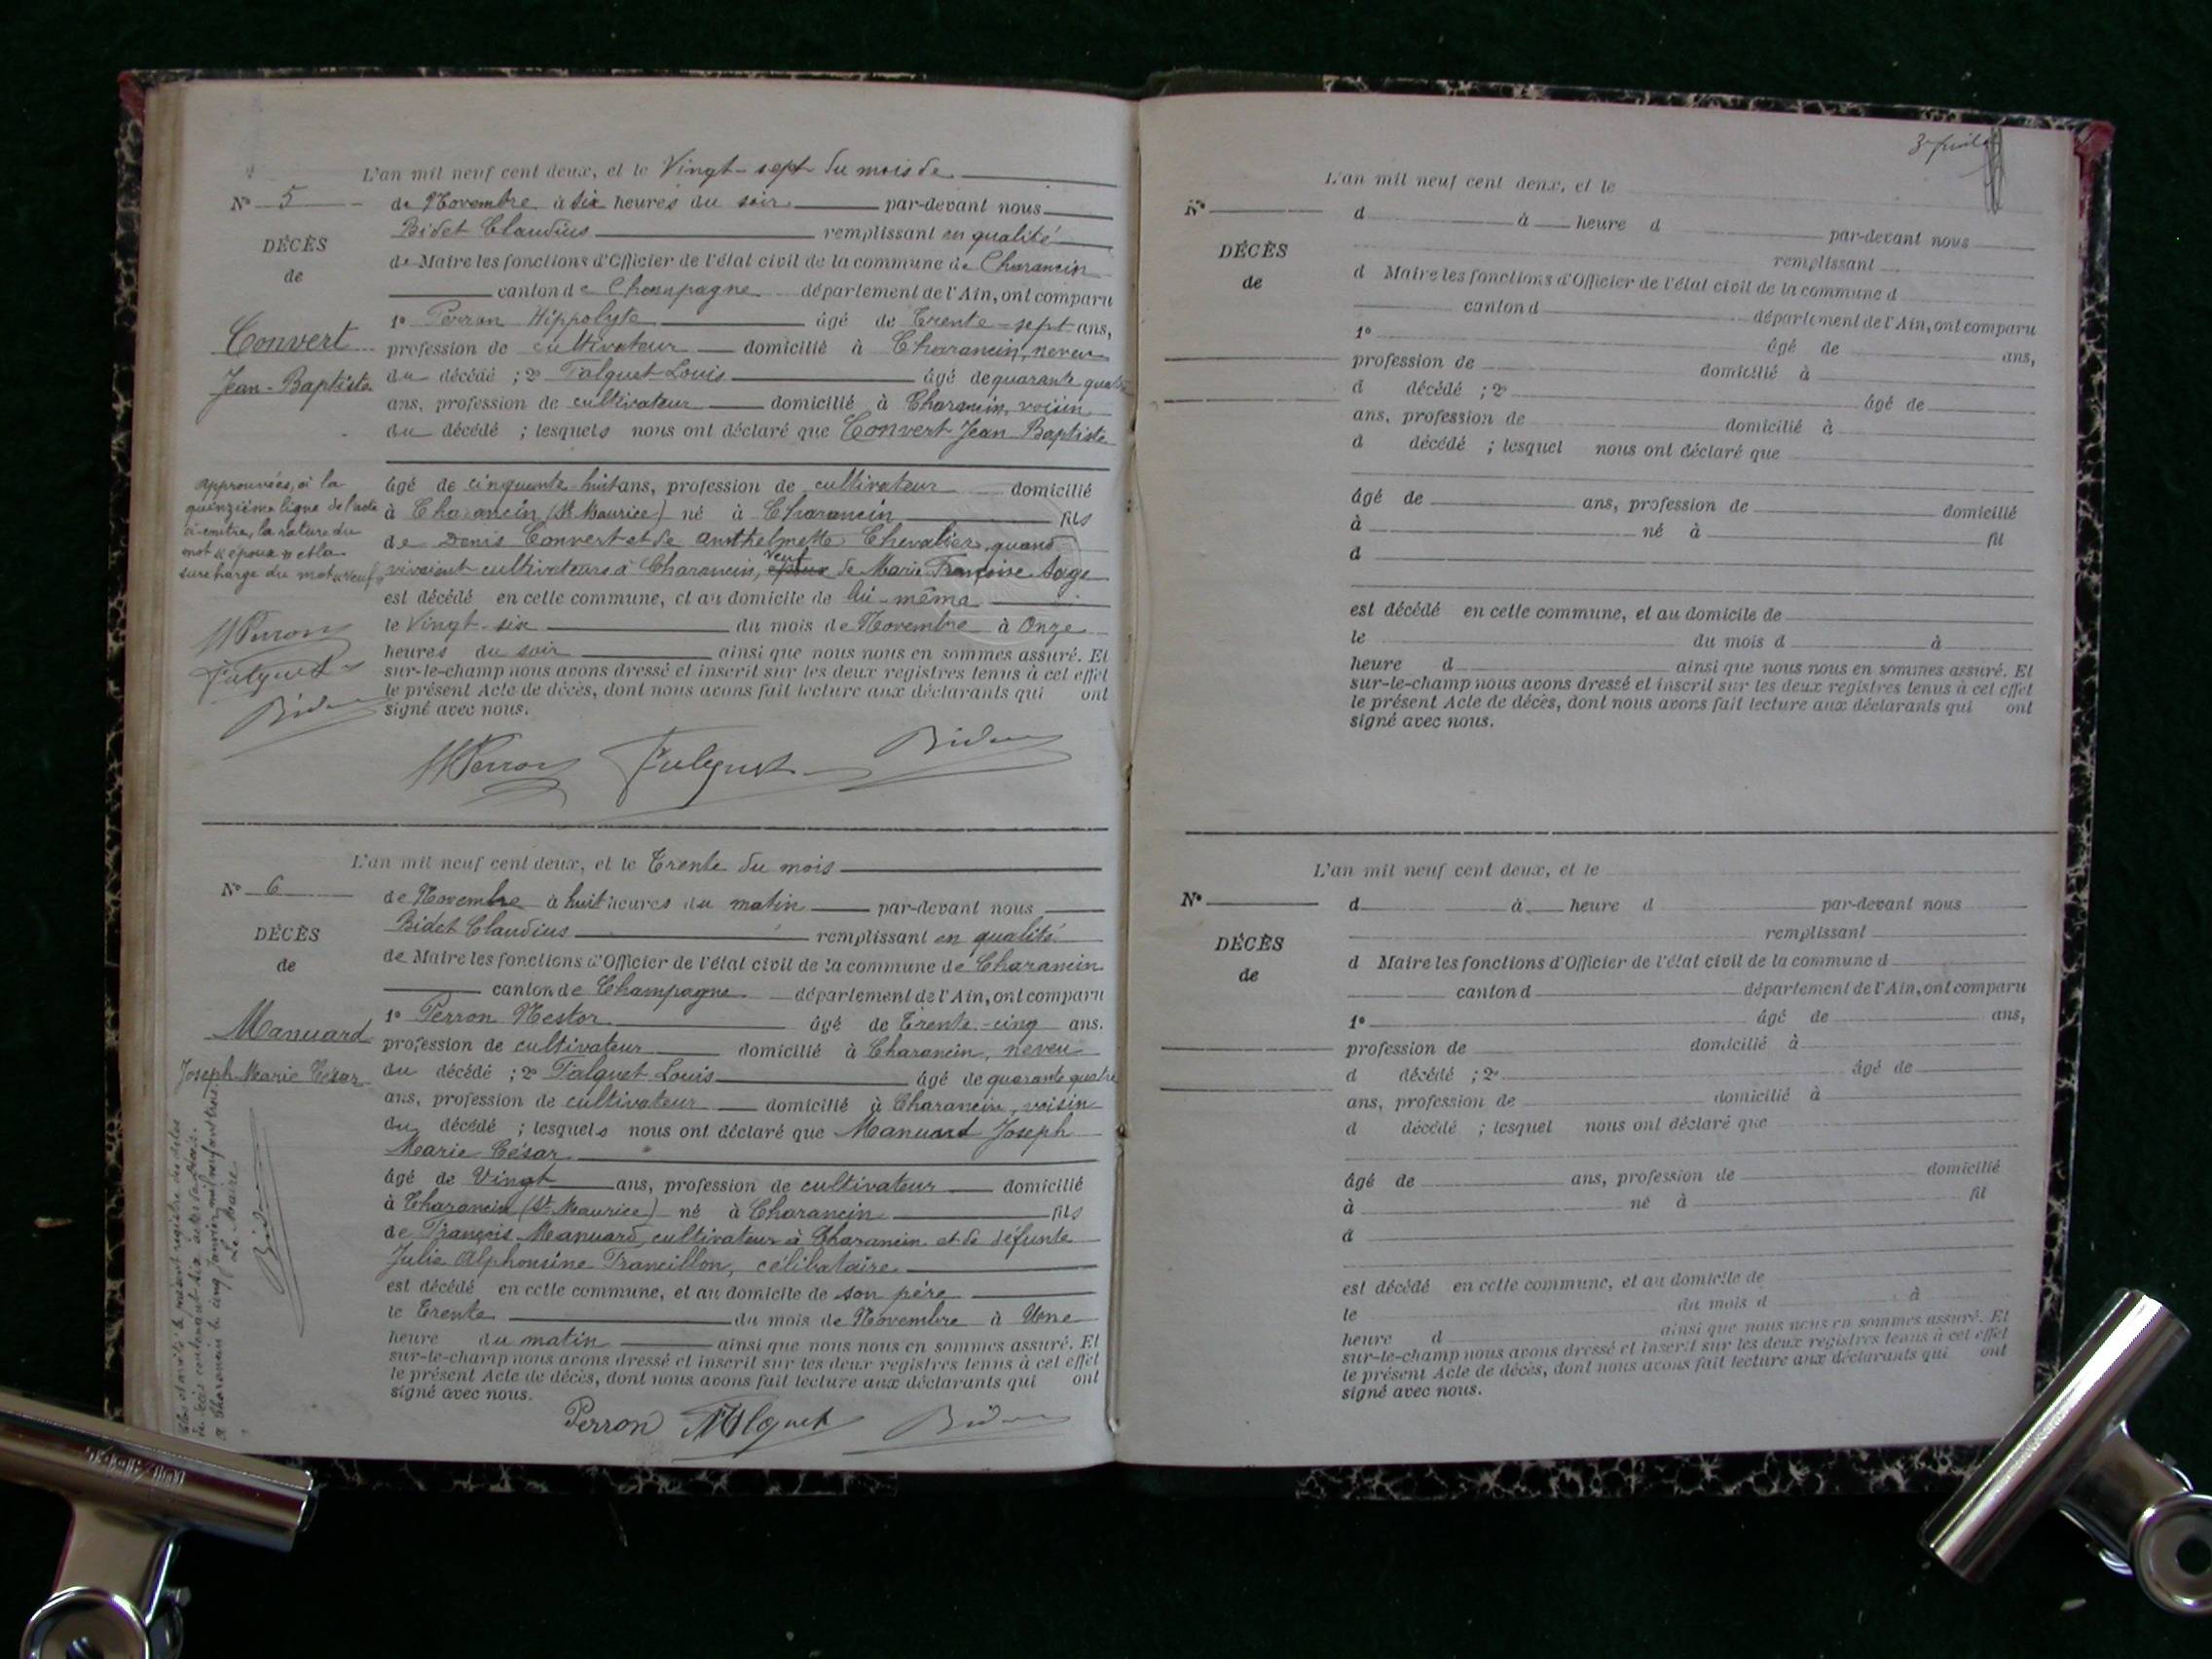 L'an mil neuf cent deux, et le Vingt-sept du mois de
N° 5
de Novembre à six heures du soir par-devant nous
Bidet Claudius remplissant en qualité
DÉCÈS
de
de Maire les fonctions d'Officier de l'état civil de la commune de Charancin
canton de Champagne département de l'Ain, ont comparu
1° Perron Hippolyte âgé de Trente-sept ans,
Convert
profession de cultivateur domicilié à Charancin, neveu
Jean-Baptiste
du décédé ; 2° Falquet Louis âgé de quarante quatre
ans, profession de cultivateur domicilié à Charancin, voisin
du décédé ; lesquels nous ont déclaré que Convert Jean Baptiste
âgé de cinquante-huit ans, profession de cultivateur domicilié
à Charancin (St Maurice) né à Charancin fils
de Denis Convert et de Anthelmette Chevalier, quand
veuf
vivaient cultivateurs à Charancin, époux de Marie Françoise
est décédé en cette commune, et au domicile de lui-même
le Vingt-six du mois de Novembre à Onze
heures du soir ainsi que nous nous en sommes assuré. Et
sur-le-champ nous avons dressé et inscrit sur les deux registres tenus à cet effet
le présent Acte de décès, dont nous avons fait lecture aux déclarants qui ont
signé avec nous.
approuvées, à la
quinzième ligne de l'acte
ci-contre, la rature du
mot « époux » et la
surcharge du mot « veuf »
HPerron
Falquet
Bidet
HPerron Falquet Bidet
L'an mil neuf cent deux, et le Trente du mois
N° 6
de Novembre à huit heures du matin par-devant nous
Bidet Claudius remplissant en qualité
DÉCÈS
de
de Maire les fonctions d'Officier de l'état civil de la commune de Charancin
canton de Champagne département de l'Ain, ont comparu
1° Perron Nestor âgé de Trente-cinq ans.
Manuard
profession de cultivateur domicilié à Charancin, neveu
Joseph Marie César
du décédé ; 2° Falquet Louis âgé de quarante quatre
ans, profession de cultivateur domicilié à Charancin, voisin
du décédé ; lesquels nous ont déclaré que Manuard Joseph
Marie César
âgé de Vingt ans, profession de cultivateur domicilié
à Charancin (St Maurice) né à Charancin fils
de François Manuard, cultivateur à Charancin et de défunte
Julie Alphonsine Francillon, célibataire
est décédé en cette commune, et au domicile de son père
le Trente du mois de Novembre à Une
heure du matin ainsi que nous nous en sommes assuré. Et
sur-le-champ nous avons dressé et inscrit sur les deux registres tenus à cet effet
le présent Acte de décès, dont nous avons fait lecture aux déclarants qui ont
signé avec nous.
Perron Falquet Bidet
Clos et arrêté le présent registre des actes
de décès contenant six actes
A Charancin le cinq janvier mil neuf cent trois
Le Maire
Bidet
L'an mil neuf cent deux, et le
N°
d à heure d par-devant nous
remplissant
DÉCÈS
de
d Maire les fonctions d'Officier de l'état civil de la commune d
canton d département de l'Ain, ont comparu
1° âgé de ans,
profession de domicilié à
d décédé ; 2° âgé de
ans, profession de domicilié à
d décédé ; lesquel nous ont déclaré que
âgé de ans, profession de domicilié
à né à fil
d
est décédé en cette commune, et au domicile de
le du mois d à
heure d ainsi que nous nous en sommes assuré. Et
sur-le-champ nous avons dressé et inscrit sur les deux registres tenus à cet effet
le présent Acte de décès, dont nous avons fait lecture aux déclarants qui ont
signé avec nous.
L'an mil neuf cent deux, et le
N°
d à heure d par-devant nous
remplissant
DÉCÈS
de
d Maire les fonctions d'Officier de l'état civil de la commune d
canton d département de l'Ain, ont comparu
1° âgé de ans,
profession de domicilié à
d décédé ; 2° âgé de
ans, profession de domicilié à
d décédé ; lesquel nous ont déclaré que
âgé de ans, profession de domicilié
à né à fil
d
est décédé en cette commune, et au domicile de
le du mois d à
heure d ainsi que nous nous en sommes assuré. Et
sur-le-champ nous avons dressé et inscrit sur les deux registres tenus à cet effet
le présent Acte de décès, dont nous avons fait lecture aux déclarants qui ont
signé avec nous.